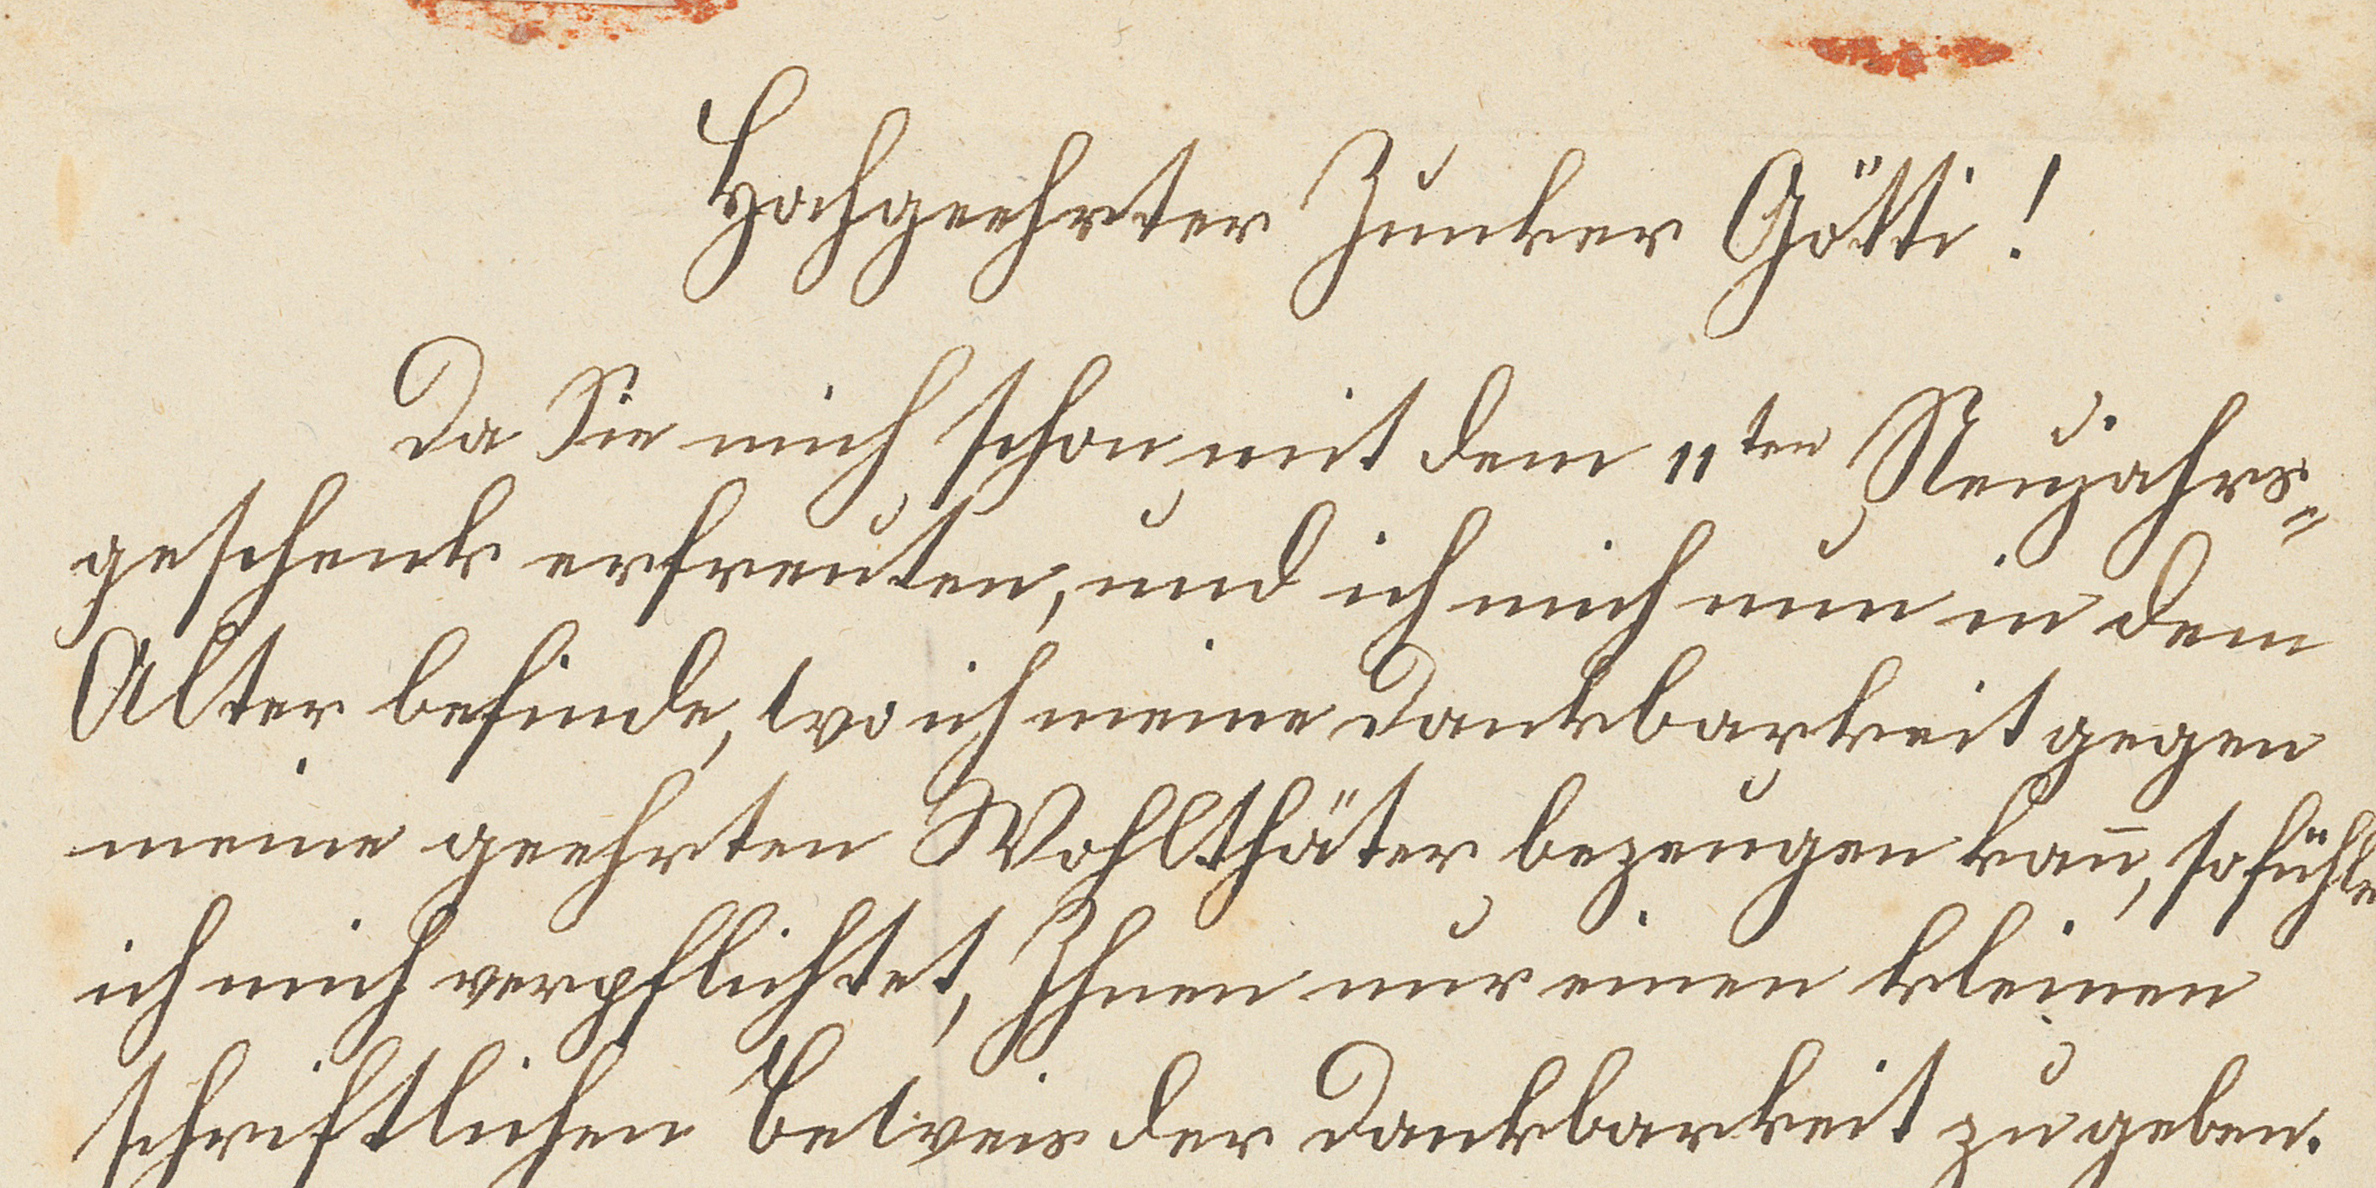 Hochgeehrter Junker Götti!
Da Sie mich schon mit dem 11ten Neujahrs=
geschenk erfreuten, und ich mich nun in dem
Alter befinde, wo ich meine Dankbarkeit gegen
meine geehrten Wohlthäter bezeugen kan̅, so fühle
ich mich verpflichtet, Ihnen nur einen kleinen
schriftlichen Beweis der Dankbarkeit zu geben.